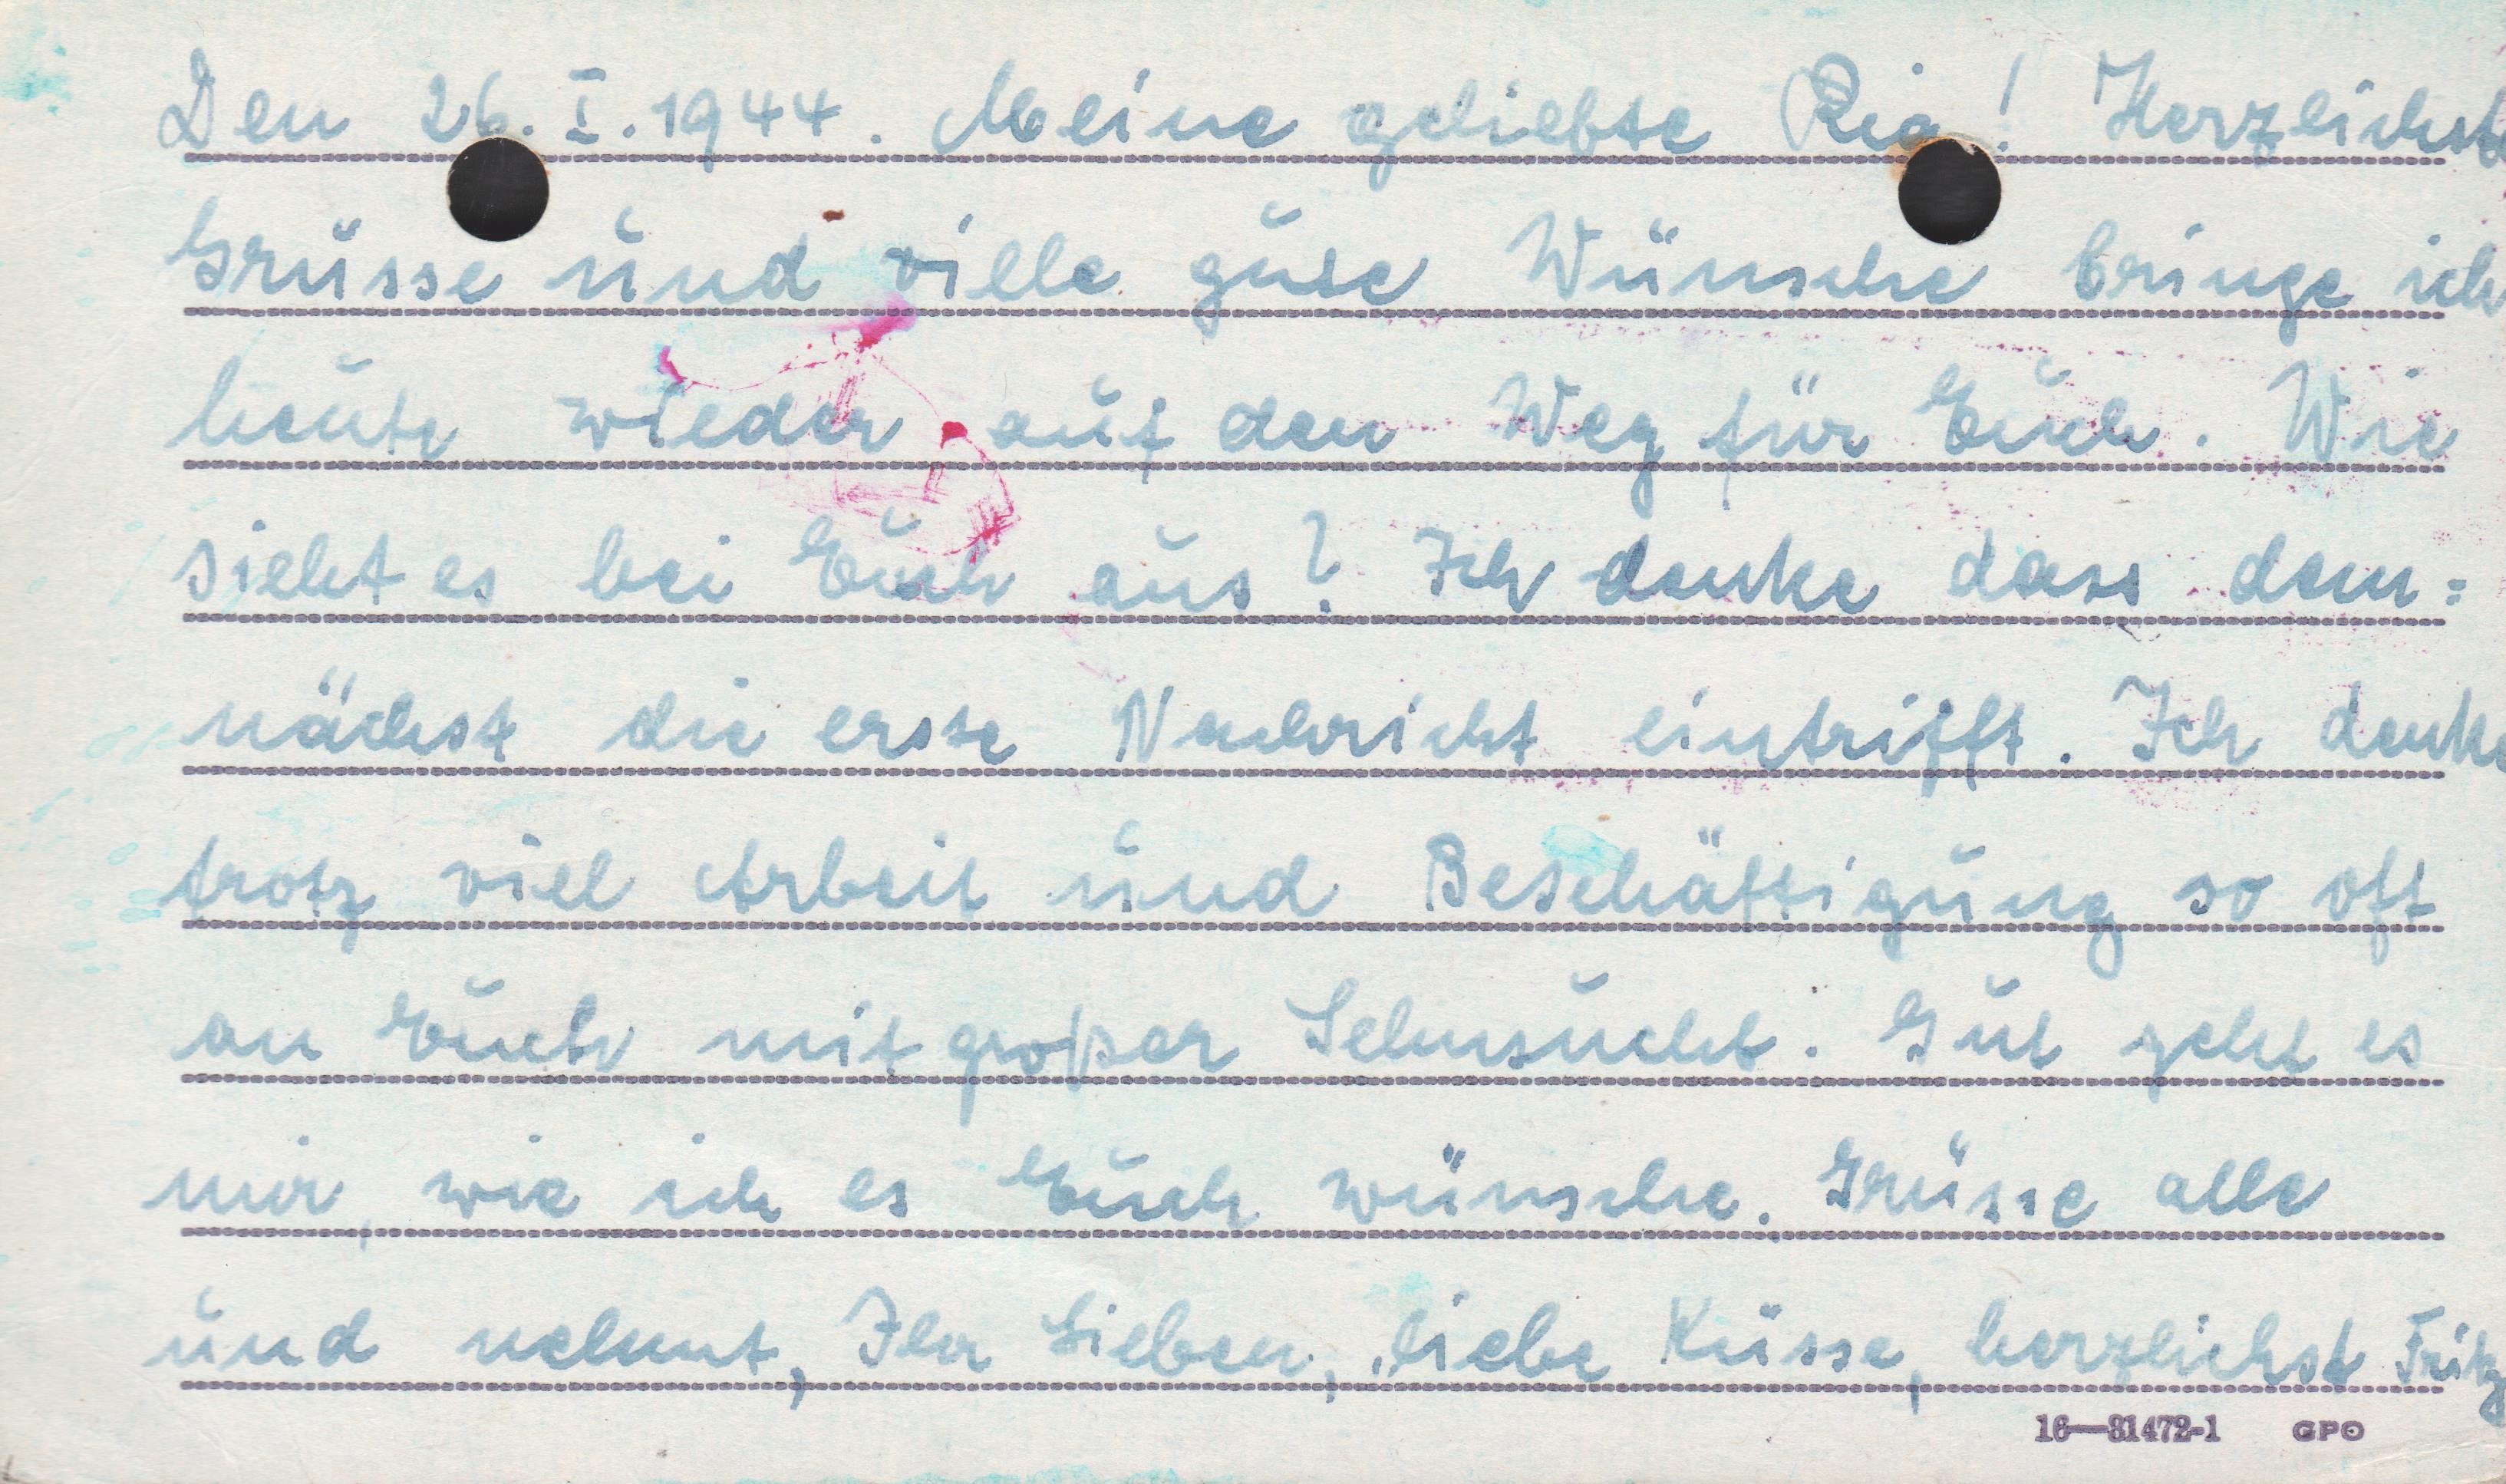 Den 26. I. 1944. Meine geliebte Ria! Herzlichste
Grüsse und ville gute Wünsche bringe ich
heute wieder auf den Weg für Euch. Wie
sieht es bei Euch aus? Ich denke dass dem=
nächst die erste Nachricht eintrifft. Ich denke
trotz viel Arbeit und Beschäftigung so oft
an Euch mit großer Sehnsucht. Gut geht es
mir, wie ich es Euch wünsche. Grüsse alle
und nehmt, Ihr Lieben, liebe Küsse, herzlichst Fritz
16—31472-1 GPO